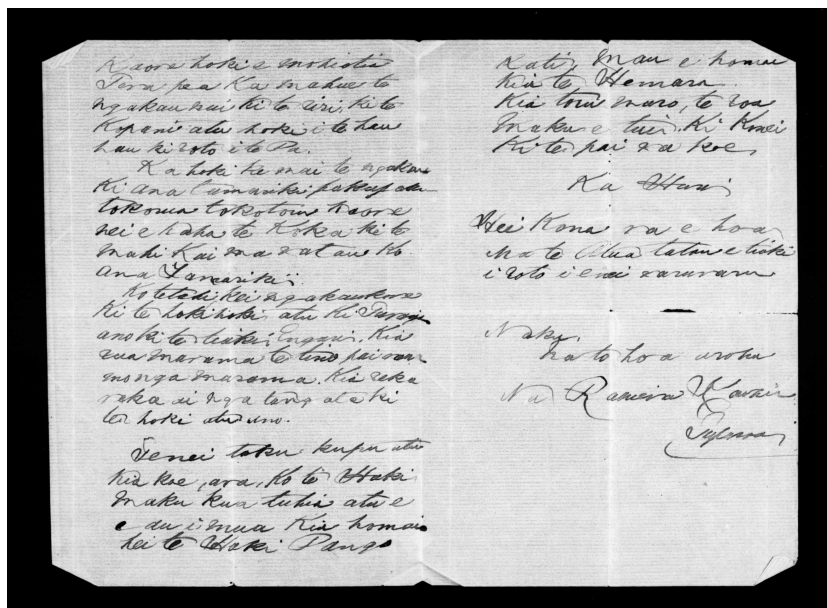 Kaore hoki e mohiotia
Tera pea Ka mahue te
ngakau nui ki te riri, ki te
Kopani atu hoki i te hau
hau ki roto i te Pa.
Ka hoki ke mai te ngakau
Ki ana tamariki
tokorua tokotoru kaore
nei e kaha te Koka ki te
mahi Kai ma ratau Ko
ana Tamariki
Ko kei ngakaukore
Ki te hokihoki atu ki
ano ki te tiaki, Engari, Kia
rua marama te tino pai
mo nga marama. Kia reka
reka ai nga tangata ki
te hoki atu ano.
Tenei taku kupu atu
Kia koe, ara, Ko te Haki
maku kua tuhia atu e
e au i mua Kia homai
hei te Haki Pango
Kati, mau e homai
Kia te Hemara
Kia toru maro, te roa
maku e tuii. Ki Konei
Ki te pai ra koe,
Ka Huri
Hei Kona ra e hoa
Ma te Atua tatau e tiaki
i roto i enei raruraru
Naku,
na to hoa aroha
Na Raneira